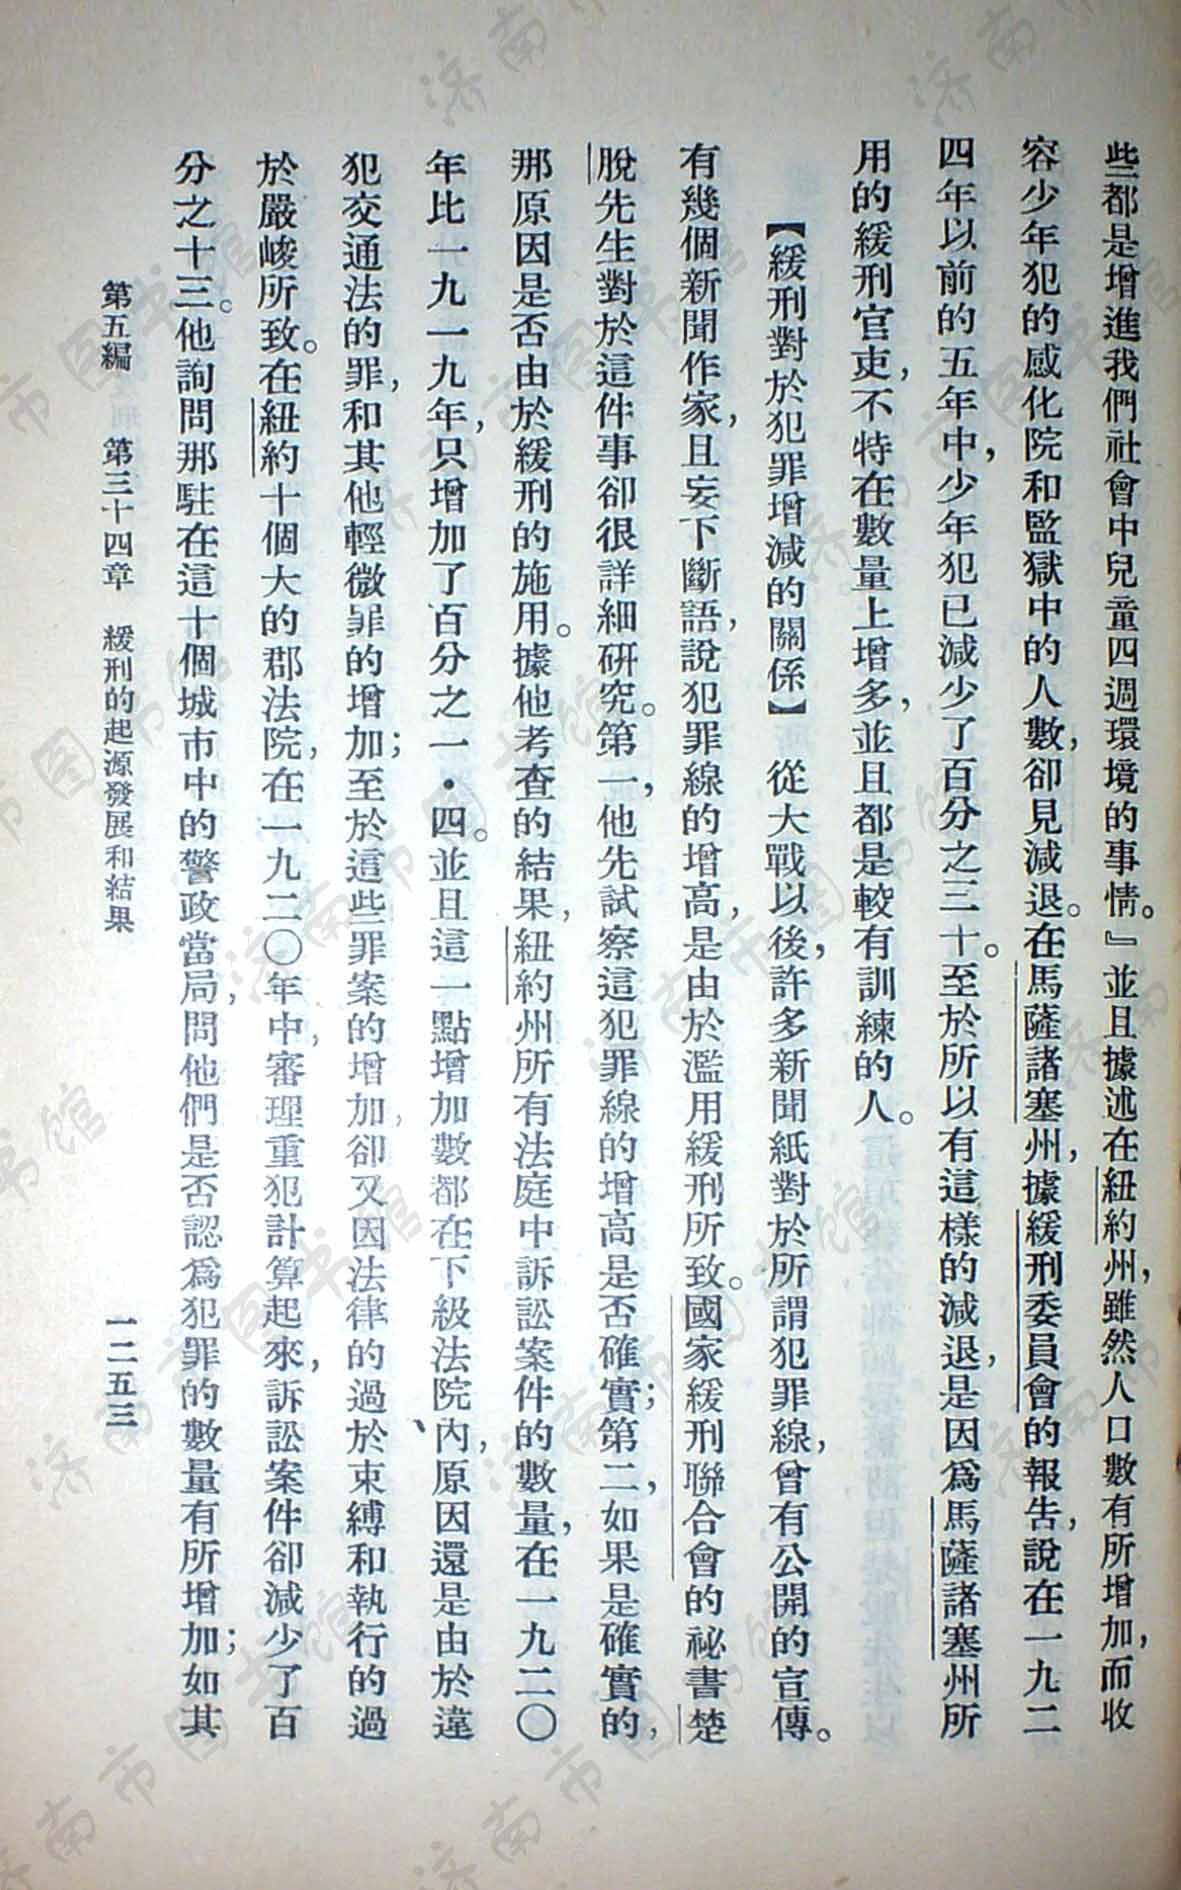 些都是增進我們社會中兒童四週環境的事情。』並且據述在紐約州，雖然人口數有所增加，而收
容少年犯的感化院和監獄中的人數，卻見減退。在馬薩諸塞州，據緩刑委員會的報告，說在一九二
四年以前的五年中，少年犯已減少了百分之三十。至於所以有這樣的減退，是因爲馬薩諸塞州所
用的緩刑官吏，不特在數量上增多，並且都是較有訓練的人。
【緩刑對於犯罪增減的關係】　從大戰以後，許多新聞紙對於所謂犯罪線，曾有公開的宣傳。
有幾個新聞作家，且妄下斷語，說犯罪線的增高，是由於濫用緩刑所致。國家緩刑聯合會的祕書楚
脫先生對於這件事卻很詳細研究。第一，他先試察這犯罪線的增高是否確實；第二，如果是確實的，
那原因是否由於緩刑的施用。據他考查的結果，紐約州所有法庭中訴訟案件的數量，在一九二〇
年比一九一九年，只增加了百分之一・四。並且這一點增加數都在下級法院內，原因還是由於違
犯交通法的罪，和其他輕微罪的增加；至於這些罪案的增加，卻又因法律的過於束縛和執行的過
於嚴峻所致。在紐約十個大的郡法院，在一九二〇年中，審理重犯計算起來，訴訟案件卻減少了百
分之十三。他詢問那駐在這十個城市中的警政當局，問他們是否認爲犯罪的數量有所增加；如其
第五編　第三十四章　緩刑的起源發展和結果
一二五三
济南市图书馆